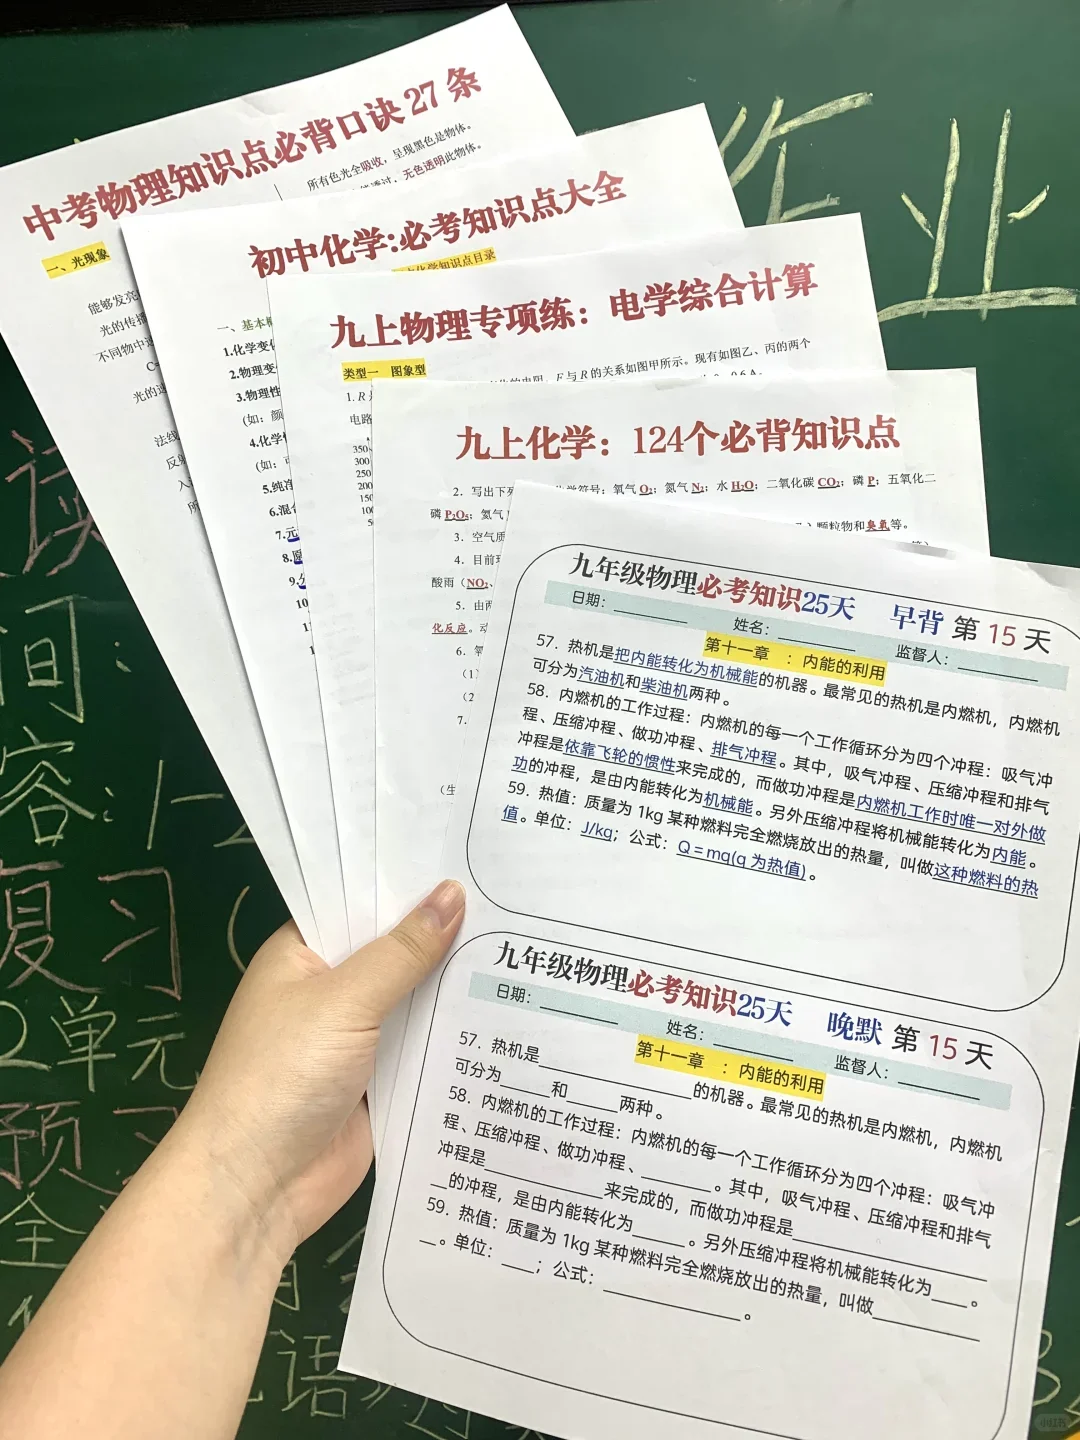 中考物理知识点必背口诀 27 条
所有色光全吸收，呈现黑色是物体。
无色透明此物体。
一、光现象
能够发亮
光的传播
不同物中速
光的速
法线
反射
初中化学:必考知识点大全
化学知识点目录
一、基本概
1.化学变化
2.物理变
3.物理性
(如: 颜
4.化学性
(如: 可
5.纯净
6.混合
7.元
8.原
9.分
10
九上物理专项练：电学综合计算
类型一 图象型
的电阻，F 与 R 的关系如图甲所示。现有如图乙、丙的两个
1. R
0.6 A
电路
350
300
250
200
150
100
九上化学：124个必背知识点
2. 写出下列化学符号：氧气 O₂；氮气 N₂；水 H₂O；二氧化碳 CO₂；磷 P；五氧化二
磷 P₂O₅；氦气
颗粒物和臭氧等。
3. 空气质
4. 目前环
酸雨（NO₂、
5. 由两
化反应。动
6. 氧
(1)
(2
7.
（生
九年级物理必考知识25天 早背 第 15 天
日期： 姓名： 监督人：
第十一章 ：内能的利用
57. 热机是把内能转化为机械能的机器。最常见的热机是内燃机，内燃机
可分为汽油机和柴油机两种。
58. 内燃机的工作过程：内燃机的每一个工作循环分为四个冲程：吸气冲
程、压缩冲程、做功冲程、排气冲程。其中，吸气冲程、压缩冲程和排气
冲程是依靠飞轮的惯性来完成的，而做功冲程是内燃机工作时唯一对外做
功的冲程，是由内能转化为机械能。另外压缩冲程将机械能转化为内能。
59. 热值：质量为 1kg 某种燃料完全燃烧放出的热量，叫做这种燃料的热
值。单位：J/kg；公式：Q = mq(q 为热值)。
九年级物理必考知识25天 晚默 第 15 天
日期： 姓名： 监督人：
第十一章 ：内能的利用
57. 热机是____的机器。最常见的热机是内燃机，内燃机
可分为____和____两种。
58. 内燃机的工作过程：内燃机的每一个工作循环分为四个冲程：吸气冲
程、压缩冲程、做功冲程、____。其中，吸气冲程、压缩冲程和排气
冲程是____来完成的，而做功冲程是____
__的冲程，是由内能转化为____。另外压缩冲程将机械能转化为____。
59. 热值：质量为 1kg 某种燃料完全燃烧放出的热量，叫做____
__。单位：____；公式：____。
作业
读
间：
容：1-2
复习（
2单元
预习
全
语
小红书